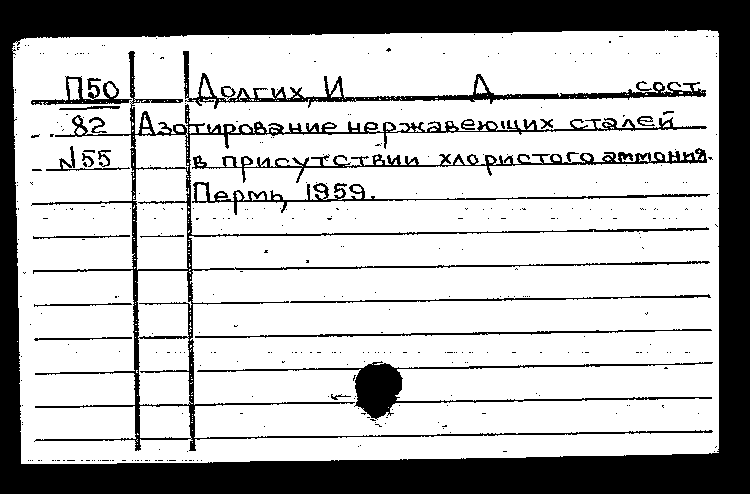 П50 Долгих, И Д ,сост.
82 Азотирование нержавеющих сталей
N55 в присутствии хлористого аммония.
Пермь, 1959.